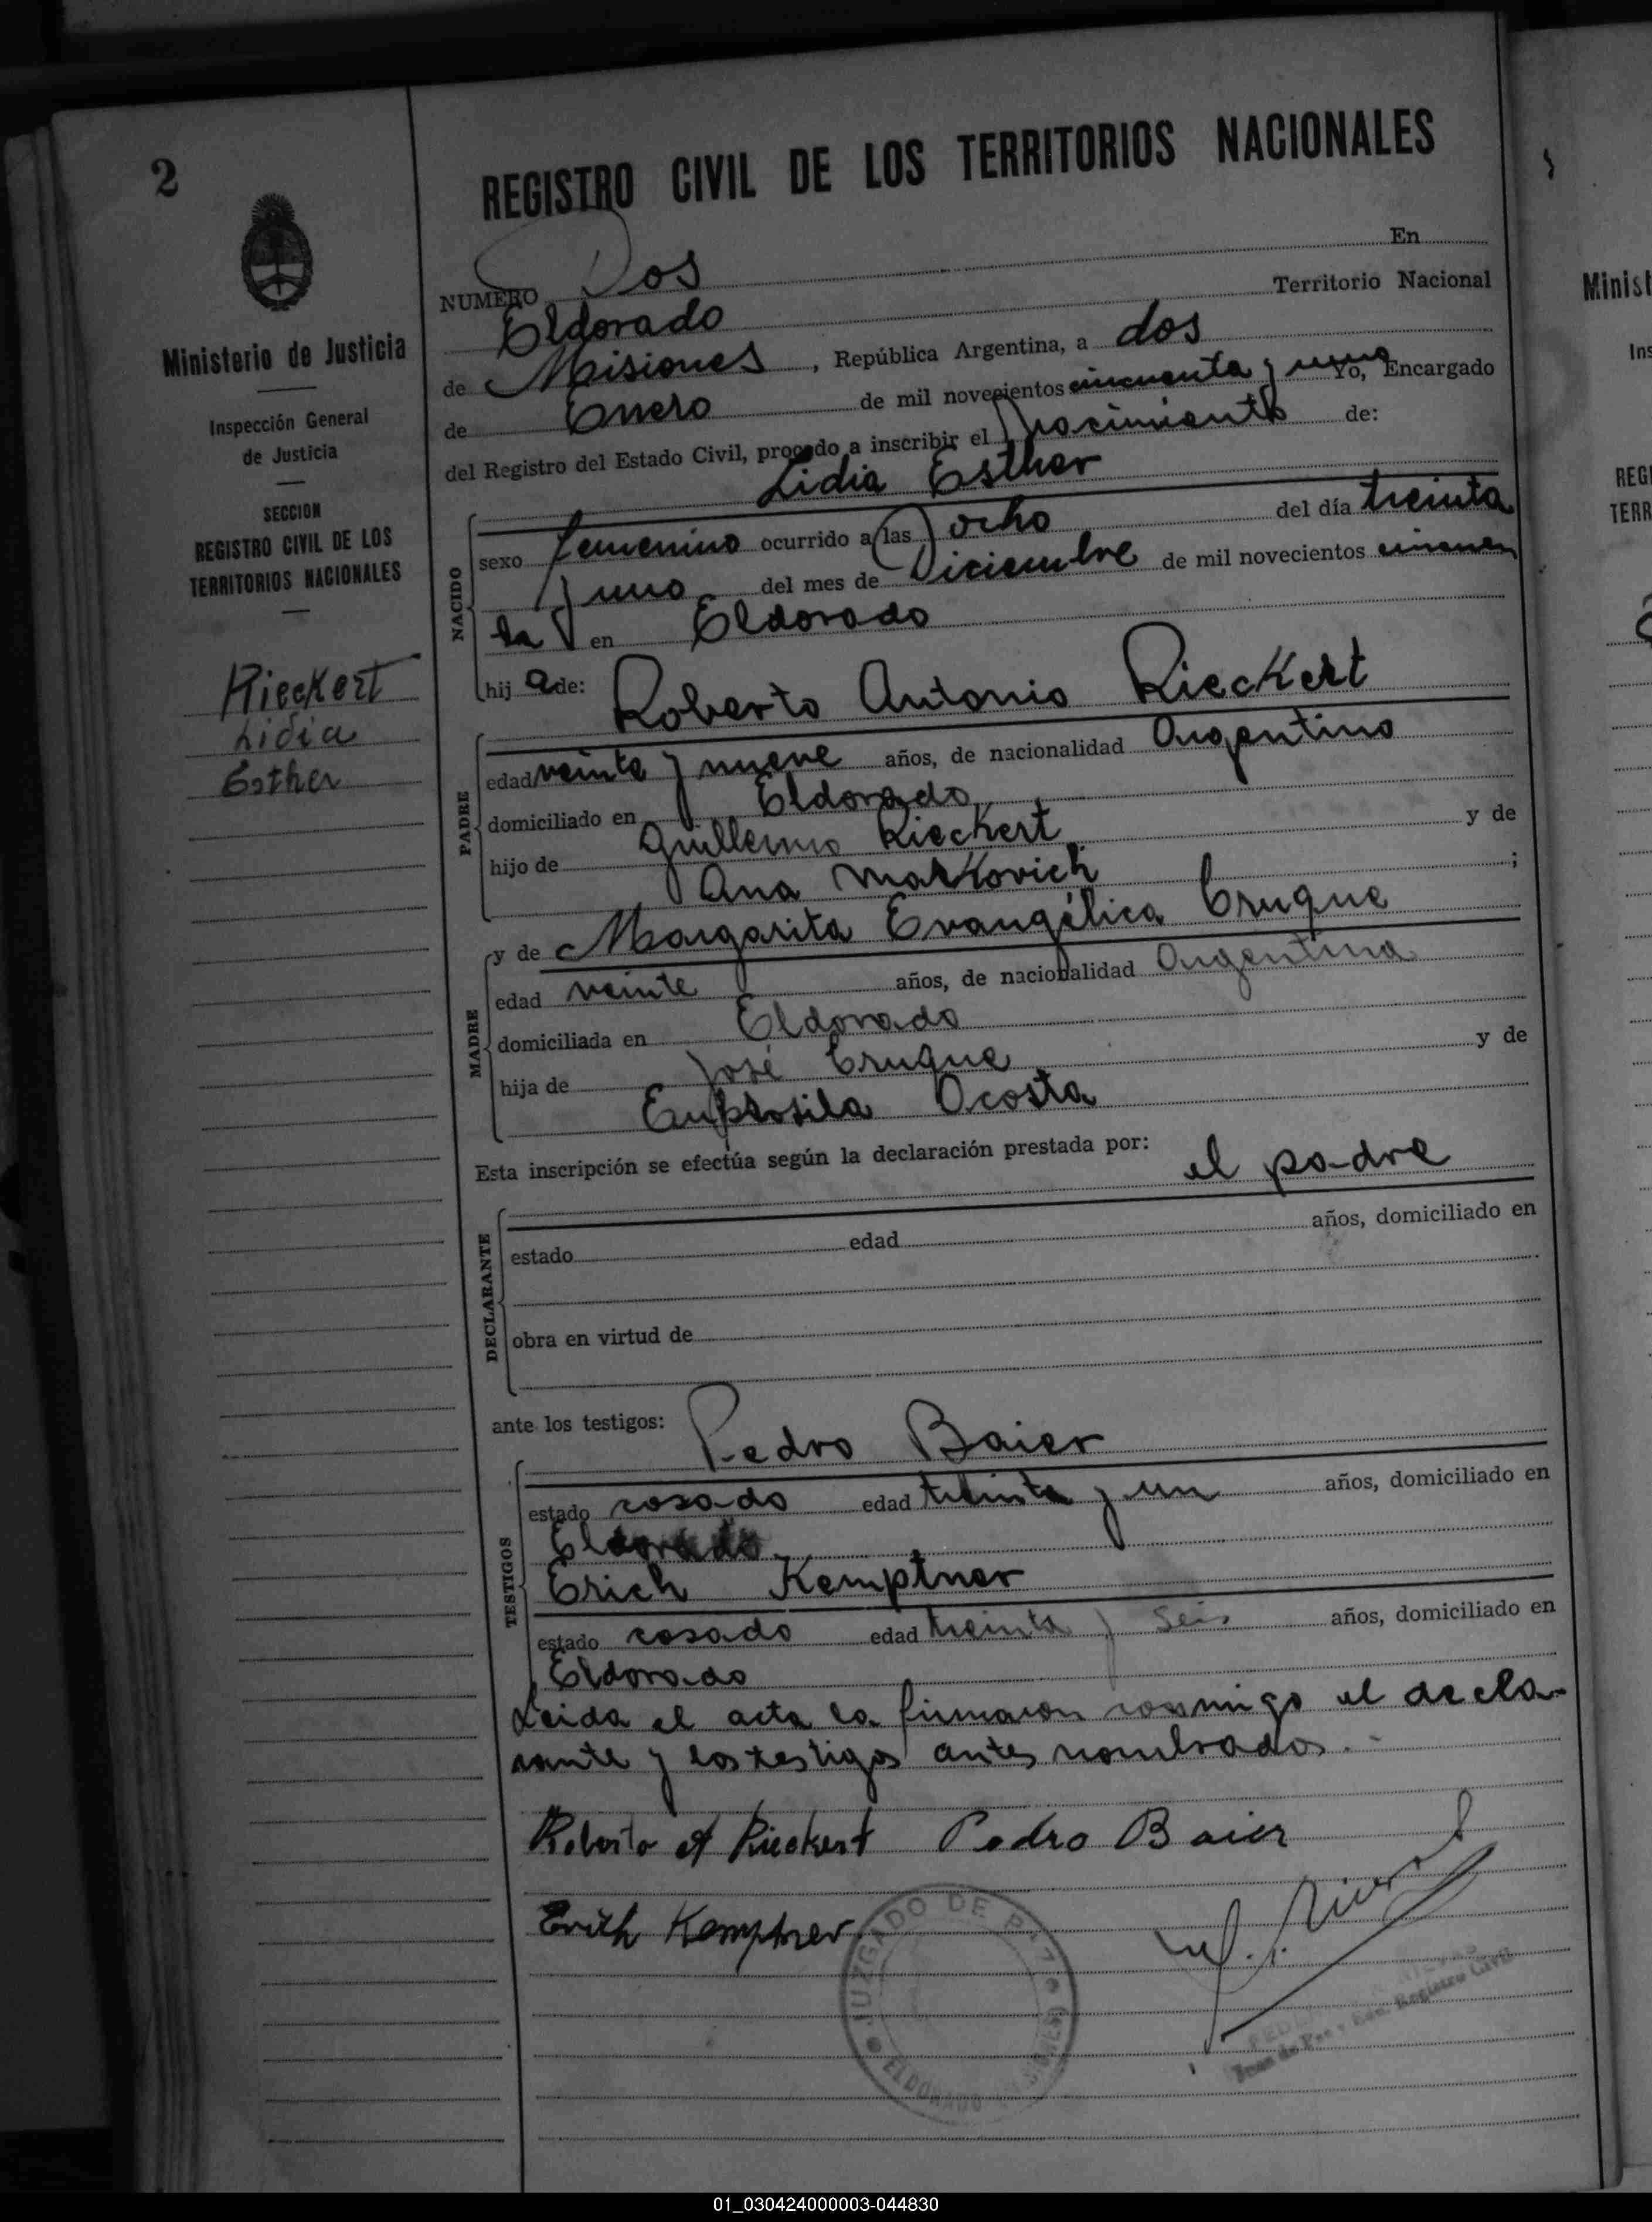 2
Ministerio de Justicia
Inspección General
de Justicia
SECCION
REGISTRO CIVIL DE LOS
TERRITORIOS NACIONALES
Rieckert
Lidia
Esther
REGISTRO CIVIL DE LOS TERRITORIOS NACIONALES
NUMERO Dos En
Eldorado Territorio Nacional
de Misiones, República Argentina, a dos
de Enero de mil novecientos cincuenta y uno Yo, Encargado
del Registro del Estado Civil, procedo a inscribir el nacimiento de:
Lidia Esther
NACIDO
sexo femenino ocurrido a las ocho del día treinta
y uno del mes de Diciembre de mil novecientos cincuen
ta en Eldorado
hij a de: Roberto Antonio Rieckert
PADRE
edad veinte y nueve años, de nacionalidad Argentino
domiciliado en Eldorado
hijo de Guillermo Rieckert y de
Ana Markovich ;
y de Margarita Evangélica Cruque
MADRE
edad veinte años, de nacionalidad Argentina
domiciliada en Eldorado
hija de José Cruque y de
Acosta
Esta inscripción se efectúa según la declaración prestada por:
el padre
DECLARANTE
estado edad años, domiciliado en
obra en virtud de
ante los testigos: Pedro Baier
TESTIGOS
estado casado edad treinta y un años, domiciliado en
Eldorado
Erich Kemptner
estado casado edad treinta y seis años, domiciliado en
Eldorado
Leida el acta la firmaron conmigo el decla-
rante y los testigos antes nombrados.-
Roberto A Rieckert Pedro Baier
Erich Kemptner
JUZGADO DE PAZ
ELDORADO MISIONES
Juez de Paz y Enc. Registro Civil
Minist
Ins
REGI
TERR
01_030424000003-044830